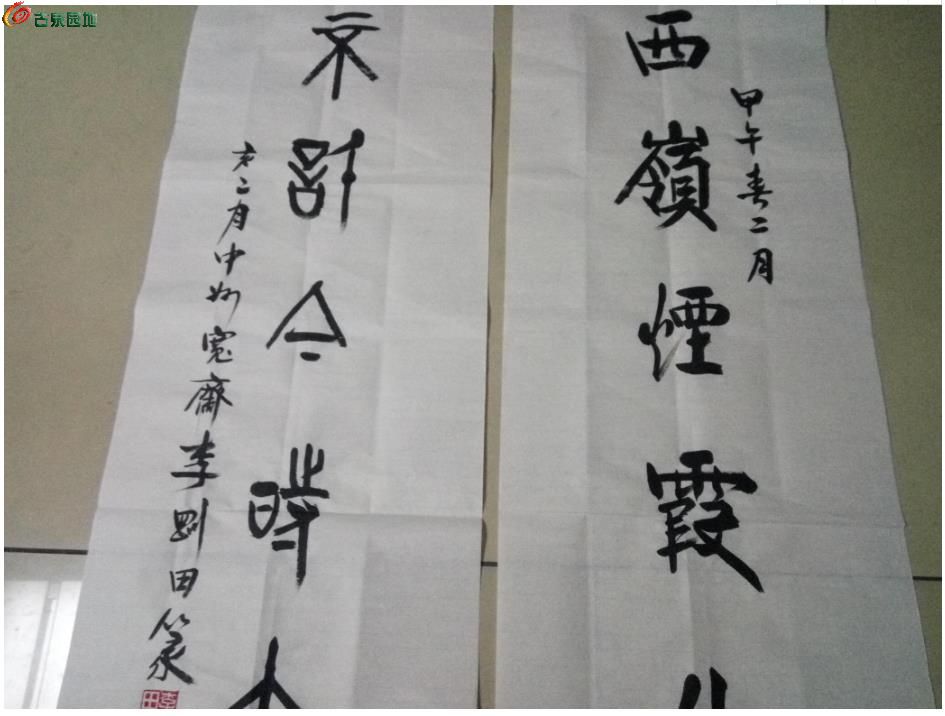 古泉园地
甲午春二月
西嶺煙霞
不計今時
亥二月中州寬齋李剛田篆